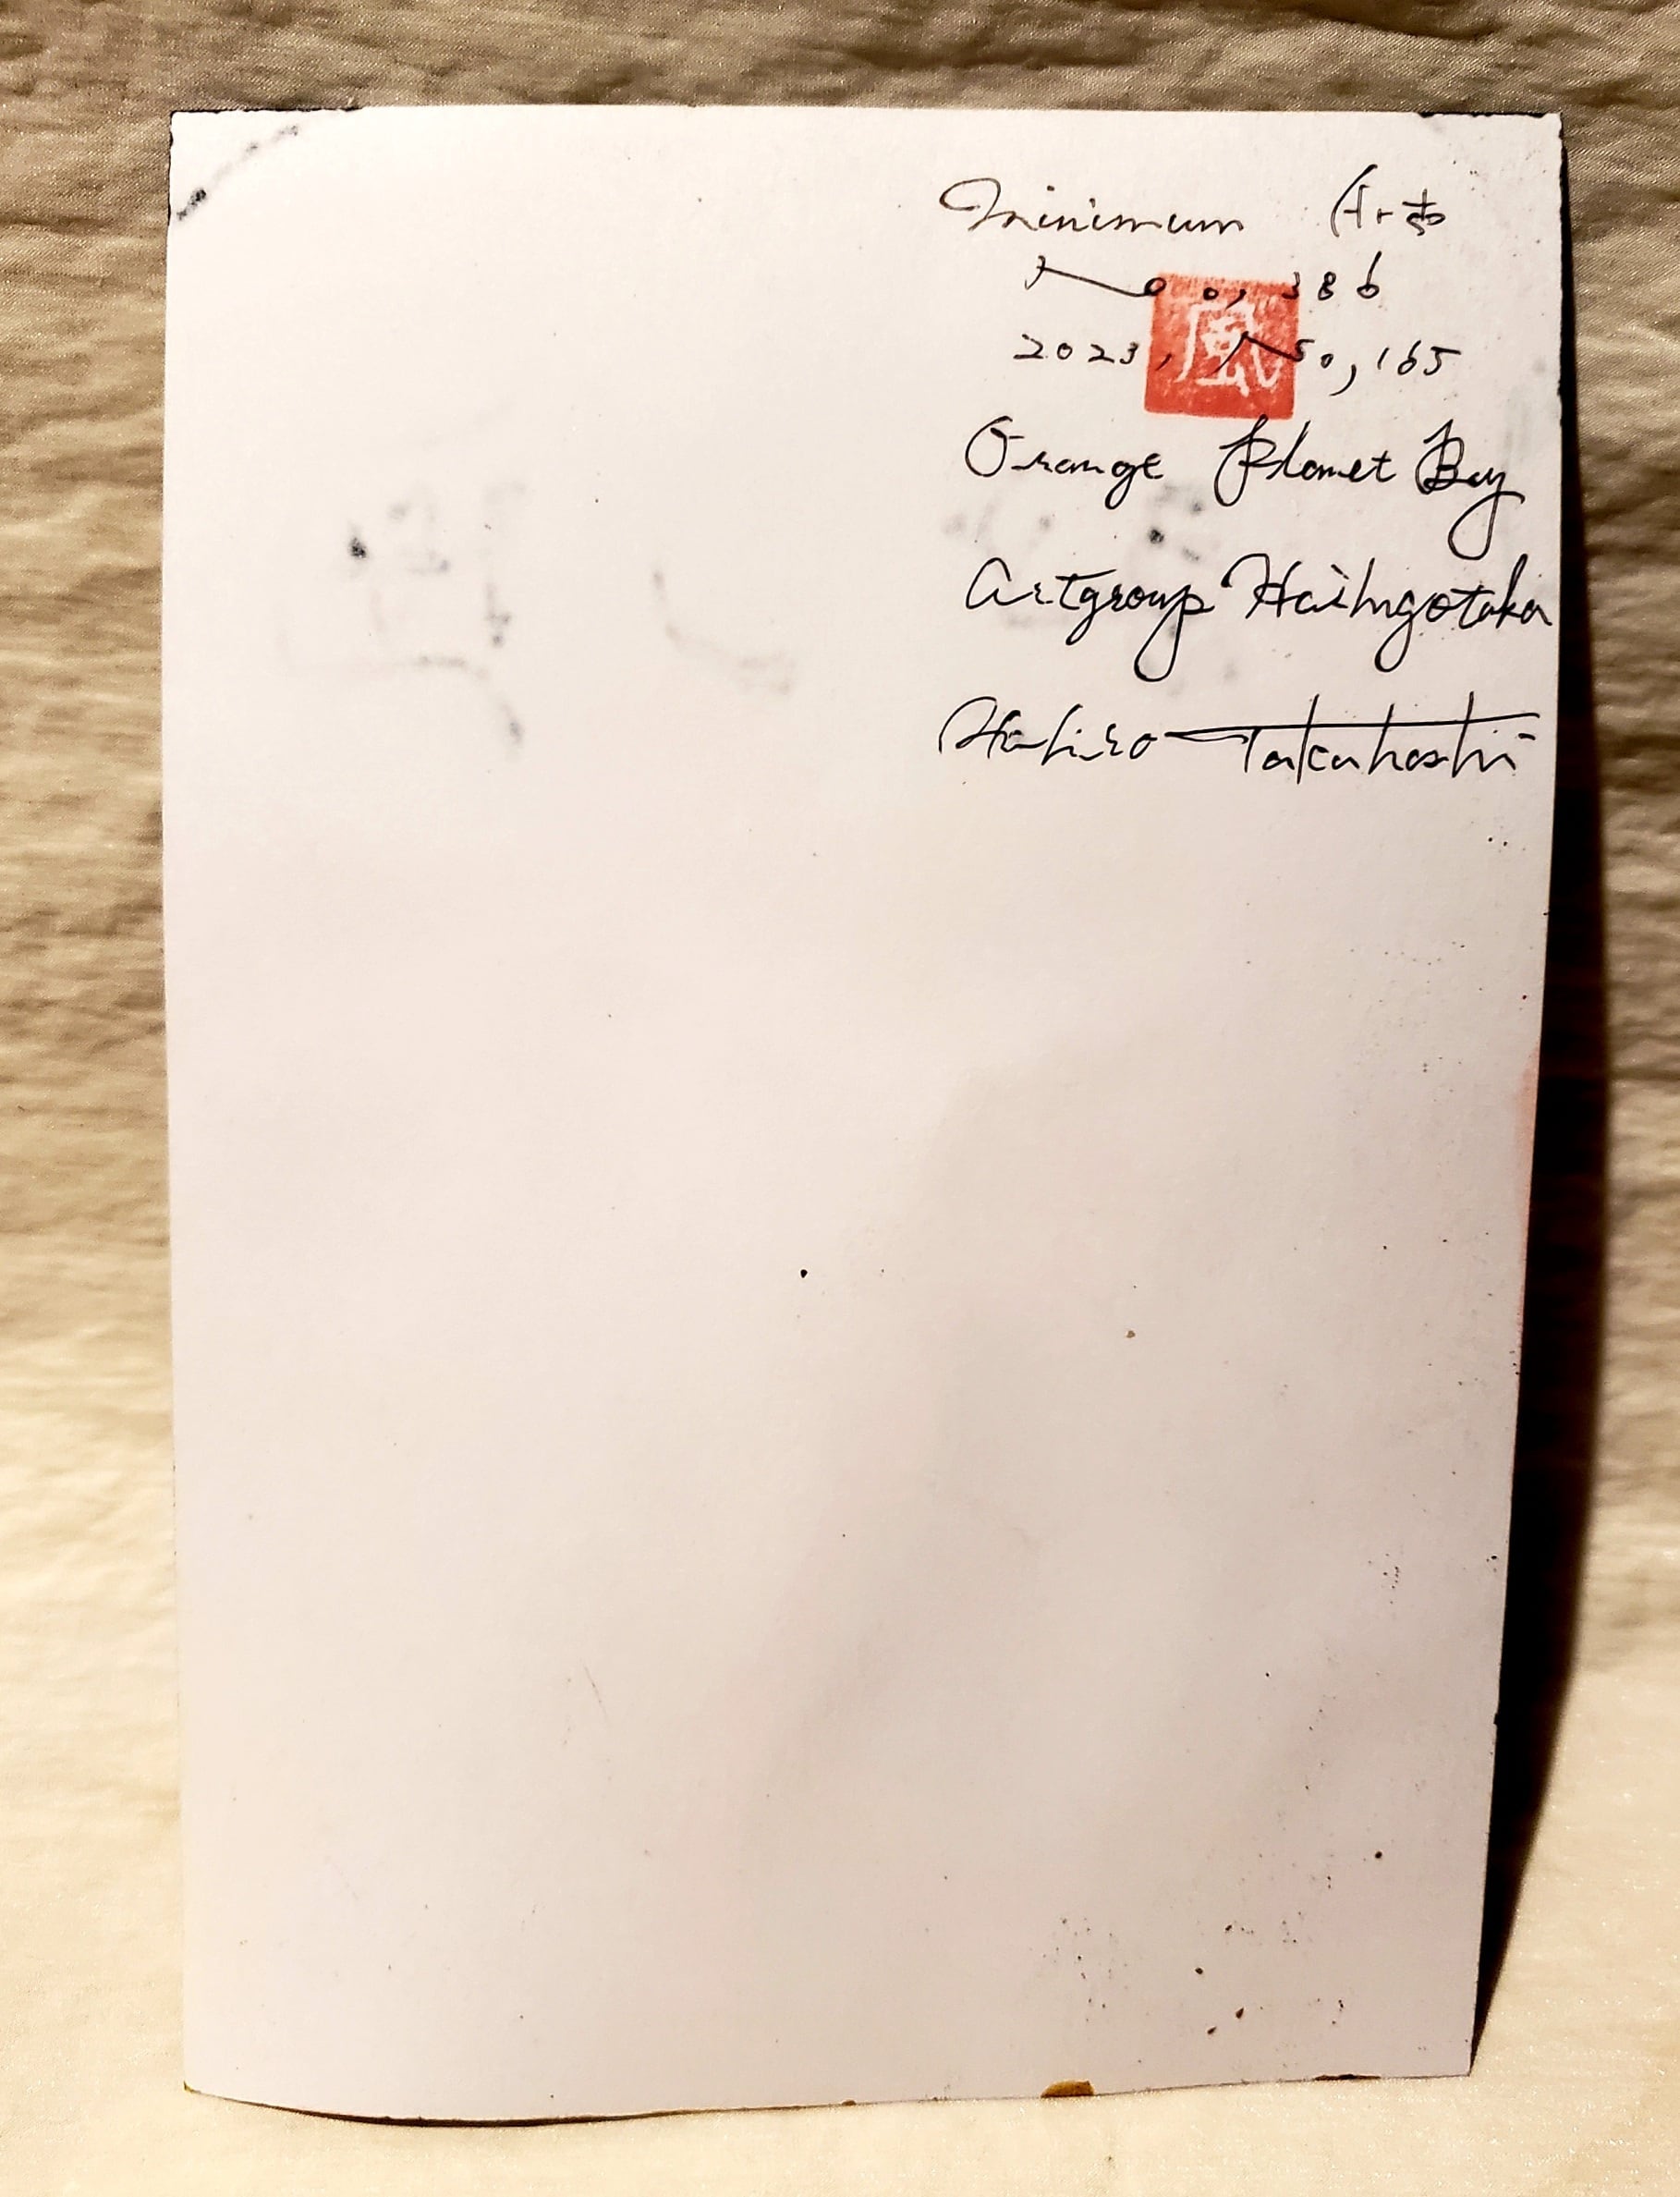 Minimum
No 0,386
2023, No 50,165
風
Orange Planet Bay
Artgroup Haihngotaka
Takahashi